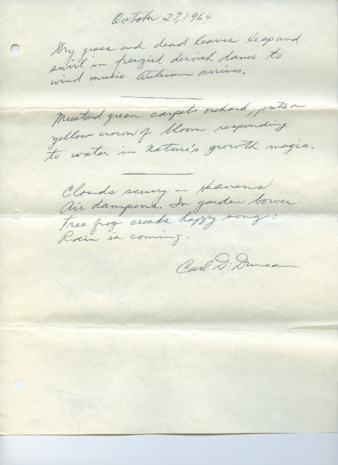 October 27, 1964
Dry grass and dead leaves leap and
swirl in frenzied dervish dance to
wind music Autumn arrives.
Mustard green carpets orchard, puts on
yellow crown of bloom responding
to water in Nature's growth magic.
Clouds scurry in Heavens
Air dampens. In garden bower
Tree frog croaks happy song:
Rain is coming.
Carl D. Duncan